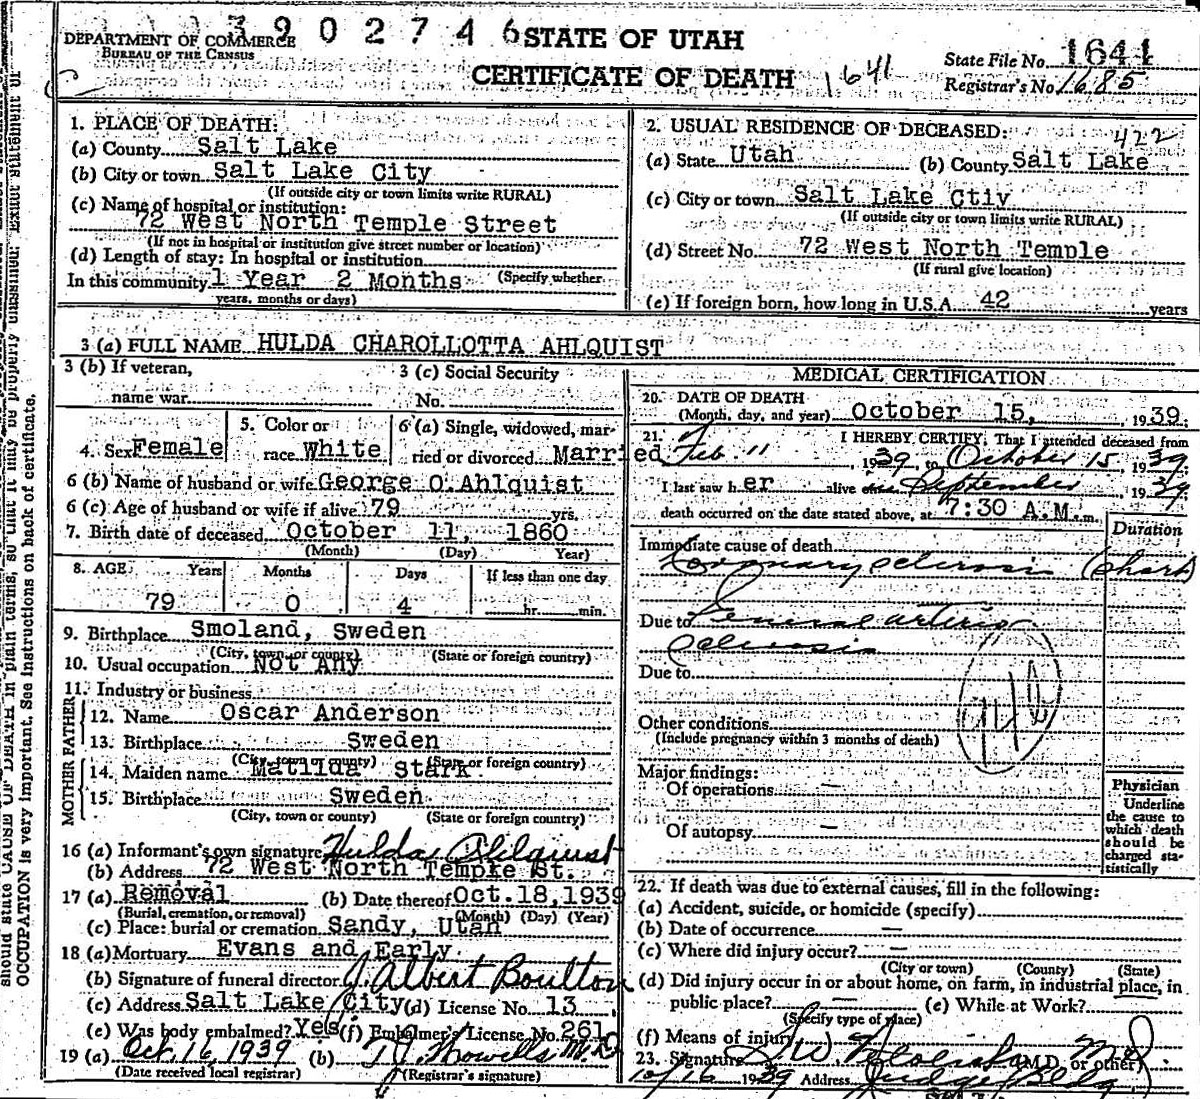 390 2746
DEPARTMENT OF COMMERCE
BUREAU OF THE CENSUS
STATE OF UTAH
CERTIFICATE OF DEATH
1641
State File No. 1641
Registrar's No. 1685
1. PLACE OF DEATH:
(a) County Salt Lake
(b) City or town Salt Lake City
(If outside city or town limits write RURAL)
(c) Name of hospital or institution:
72 West North Temple Street
(If not in hospital or institution give street number or location)
(d) Length of stay: In hospital or institution
In this community 1 Year 2 Months (Specify whether
years, months or days)
2. USUAL RESIDENCE OF DECEASED:
422
(a) State Utah (b) County Salt Lake
(c) City or town Salt Lake Ctiy
(If outside city or town limits write RURAL)
(d) Street No. 72 West North Temple
(If rural give location)
(e) If foreign born, how long in U.S.A. 42 years
3 (a) FULL NAME HULDA CHAROLLOTTA AHLQUIST
3 (b) If veteran,
name war
3 (c) Social Security
No.
4. Sex Female
5. Color or
race White
6 (a) Single, widowed, mar-
ried or divorced Married
6 (b) Name of husband or wife George O. Ahlquist
6 (c) Age of husband or wife if alive 79 yrs.
7. Birth date of deceased October 11, 1860
(Month) (Day) Year)
8. AGE Years Months Days If less than one day
79 0 4 hr. min.
9. Birthplace Smoland, Sweden
(City, town or county) (State or foreign country)
10. Usual occupation Not Any
11. Industry or business
FATHER
12. Name Oscar Anderson
13. Birthplace Sweden
(City, town or county) (State or foreign country)
MOTHER
14. Maiden name Matilda Stark
15. Birthplace Sweden
(City, town or county) (State or foreign country)
16 (a) Informant's own signature Hulda Ahlquist
(b) Address 72 West North Tempke St.
17 (a) Removal (b) Date thereof Oct. 18, 1939
(Burial, cremation, or removal) (Month) (Day) (Year)
(c) Place: burial or cremation Sandy, Utah
18 (a) Mortuary Evans and Early
(b) Signature of funeral director J. Albert Boulton
(c) Address Salt Lake City (d) License No. 13
(e) Was body embalmed? Yes (f) Embalmer's License No. 261
19 (a) Oct. 16, 1939 (b) T.J. Howells M.D.
(Date received local registrar) (Registrar's signature)
MEDICAL CERTIFICATION
20. DATE OF DEATH
(Month, day, and year) October 15, 1939
21. I HEREBY CERTIFY, That I attended deceased from
Feb. 11, 1939 to October 15, 1939
I last saw her alive on September 1939
death occurred on the date stated above, at 7:30 A.M. m.
Duration
Immediate cause of death
Coronary sclerosis
Due to General arterio
sclerosis
Due to
Other conditions
(Include pregnancy within 3 months of death)
Major findings:
Of operations —
Of autopsy —
Physician
Underline
the cause to
which death
should be
charged sta-
tistically
22. If death was due to external causes, fill in the following:
(a) Accident, suicide, or homicide (specify)
(b) Date of occurrence —
(c) Where did injury occur? —
(City or town) (County) (State)
(d) Did injury occur in or about home, on farm, in industrial place, in
public place? — (e) While at Work?
(Specify type of place)
(f) Means of injury
23. Signature (M.D. or other) M.D.
10/16 1939 Address Judge Bldg
should state CAUSE OF DEATH in plain terms, so that it may be properly classified. Exact statement of
OCCUPATION is very important. See instructions on back of certificate.